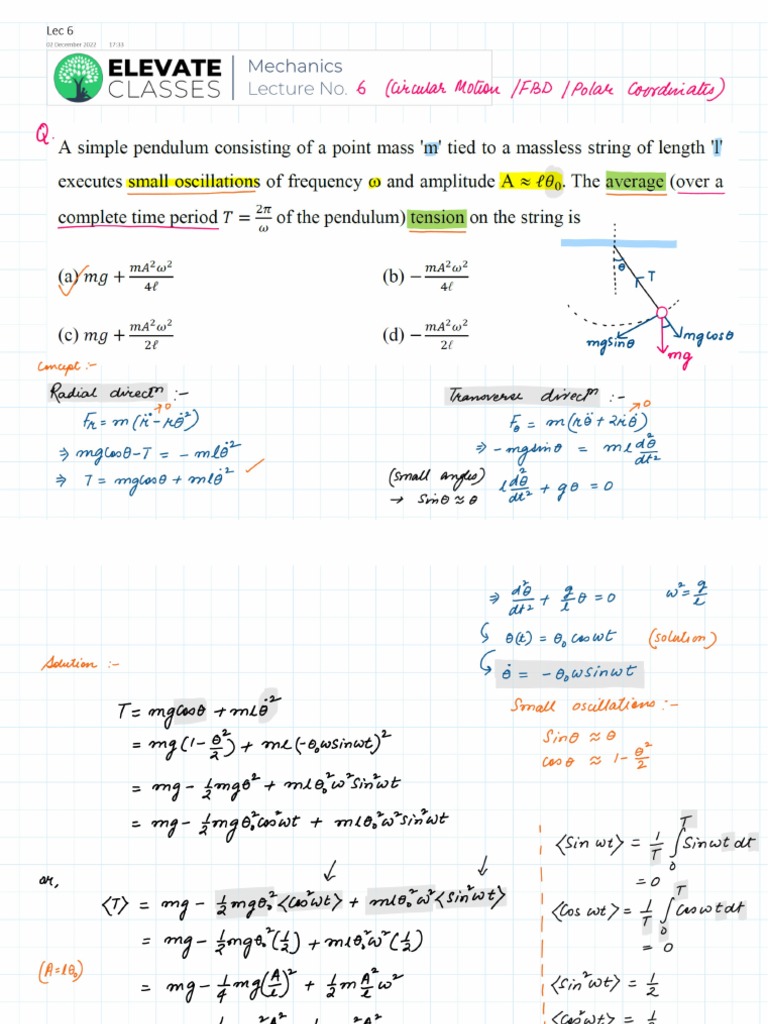 Lec 6
02 December 2022 17:33
ELEVATE CLASSES
Mechanics
Lecture No. 6 (Circular Motion / FBD / Polar Coordinates)
Q. A simple pendulum consisting of a point mass 'm' tied to a massless string of length 'l'
executes small oscillations of frequency ω and amplitude A ≈ ℓθ₀. The average (over a
complete time period T = 2π/ω of the pendulum) tension on the string is
(a) mg + mA²ω²/4ℓ (b) − mA²ω²/4ℓ
(c) mg + mA²ω²/2ℓ (d) − mA²ω²/2ℓ
θ T
mg sinθ mg cosθ
mg
Concept :-
Radial directⁿ :-
F_r = m(r̈ - rθ̇²) → 0
⇒ mg cosθ - T = - mlθ̇²
⇒ T = mg cosθ + mlθ̇²
Transverse directⁿ :-
F_θ = m(rθ̈ + 2ṙθ̇) → 0
⇒ - mg sinθ = ml d²θ/dt²
(small angles) l d²θ/dt² + gθ = 0
→ sinθ ≈ θ
⇒ d²θ/dt² + g/l θ = 0 ω² = g/l
θ(t) = θ₀ cosωt (solution)
θ̇ = - θ₀ω sinωt
Small oscillations :-
Sinθ ≈ θ
cosθ ≈ 1 - θ²/2
Solution :-
T = mg cosθ + mlθ̇²
= mg(1 - θ²/2) + ml(-θ₀ω sinωt)²
= mg - 1/2 mgθ² + mlθ₀²ω² sin²ωt
= mg - 1/2 mgθ₀² cos²ωt + mlθ₀²ω² sin²ωt
or,
⟨T⟩ = mg - 1/2 mgθ₀² ⟨cos²ωt⟩ + mlθ₀²ω² ⟨sin²ωt⟩
= mg - 1/2 mgθ₀² (1/2) + mlθ₀²ω² (1/2)
(A = lθ₀)
= mg - 1/4 mg (A/l)² + 1/2 m A²/l ω²
⟨Sin ωt⟩ = 1/T ∫₀ᵀ Sinωt dt
= 0
⟨Cos ωt⟩ = 1/T ∫₀ᵀ Cosωt dt
= 0
⟨Sin²ωt⟩ = 1/2